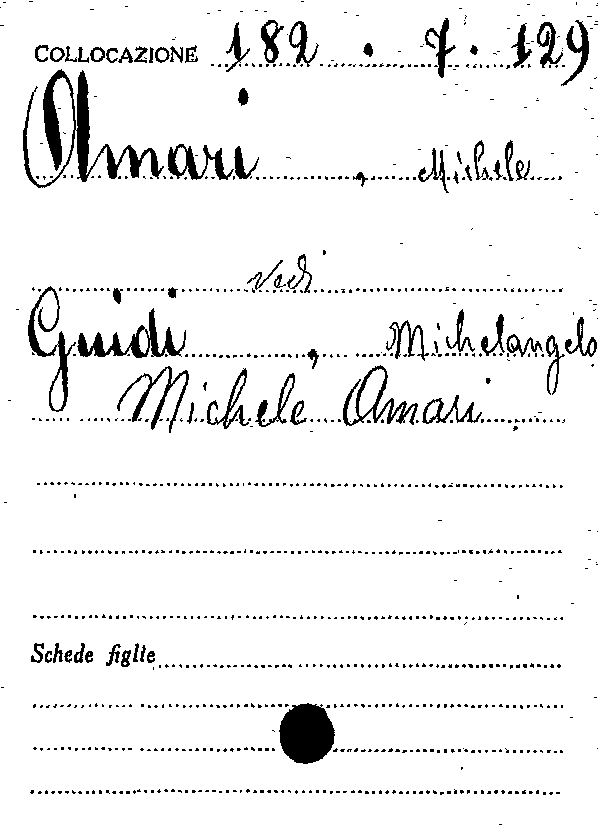 COLLOCAZIONE 182 . 7 . 129
Amari , Michele
Vedi
Guidi , Michelangelo
Michele Amari .
Schede figlie